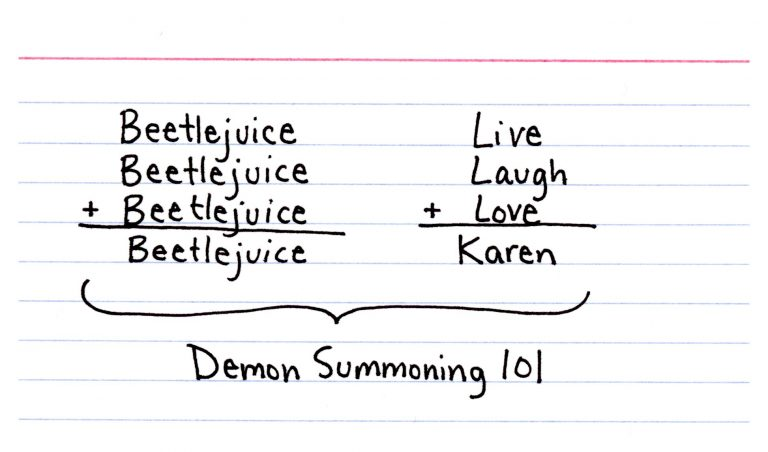 Beetlejuice
Beetlejuice
+ Beetlejuice
Beetlejuice
Live
Laugh
+ Love
Karen
Demon Summoning 101